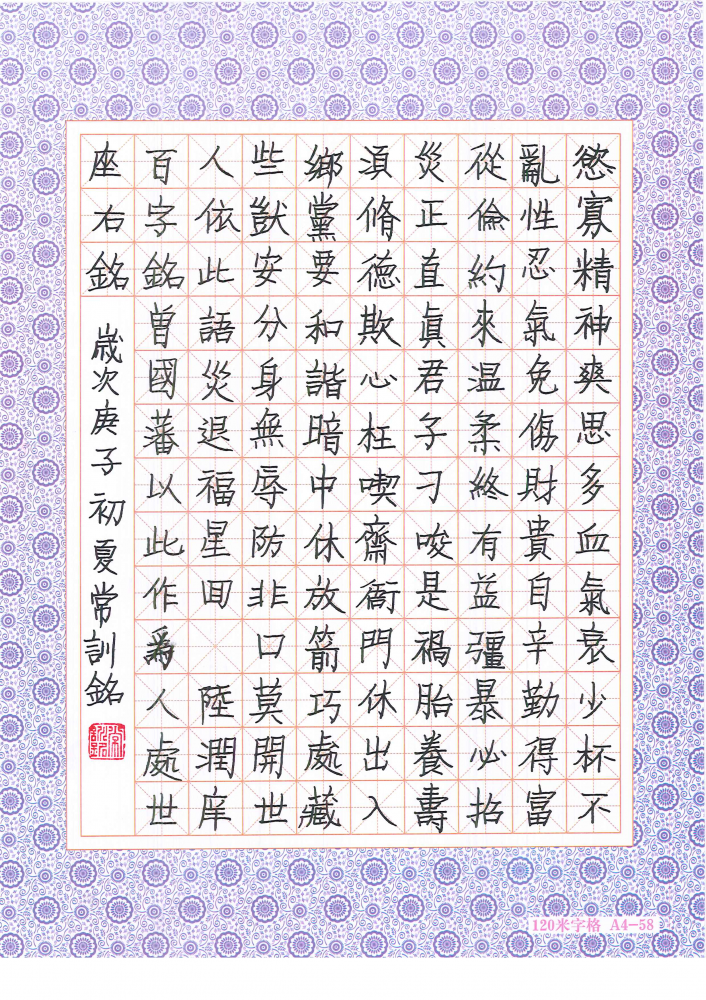 慾寡精神爽思多血氣衰少杯不
亂性忍氣免傷財貴自辛勤得富
從倫約來温柔終有益彊暴必招
災正直眞君子刁唆是禍胎養壽
湏脩德欺心枉喫齋衙門休出入
鄉黨要和諧暗中休放箭巧處藏
些獃安分身無辱防非口莫開世
人依此語災退福星回 陸潤庠
百字銘曾國藩以此作為人處世
座右銘
歲次庚子初夏常訓銘
120米字格 A4-58